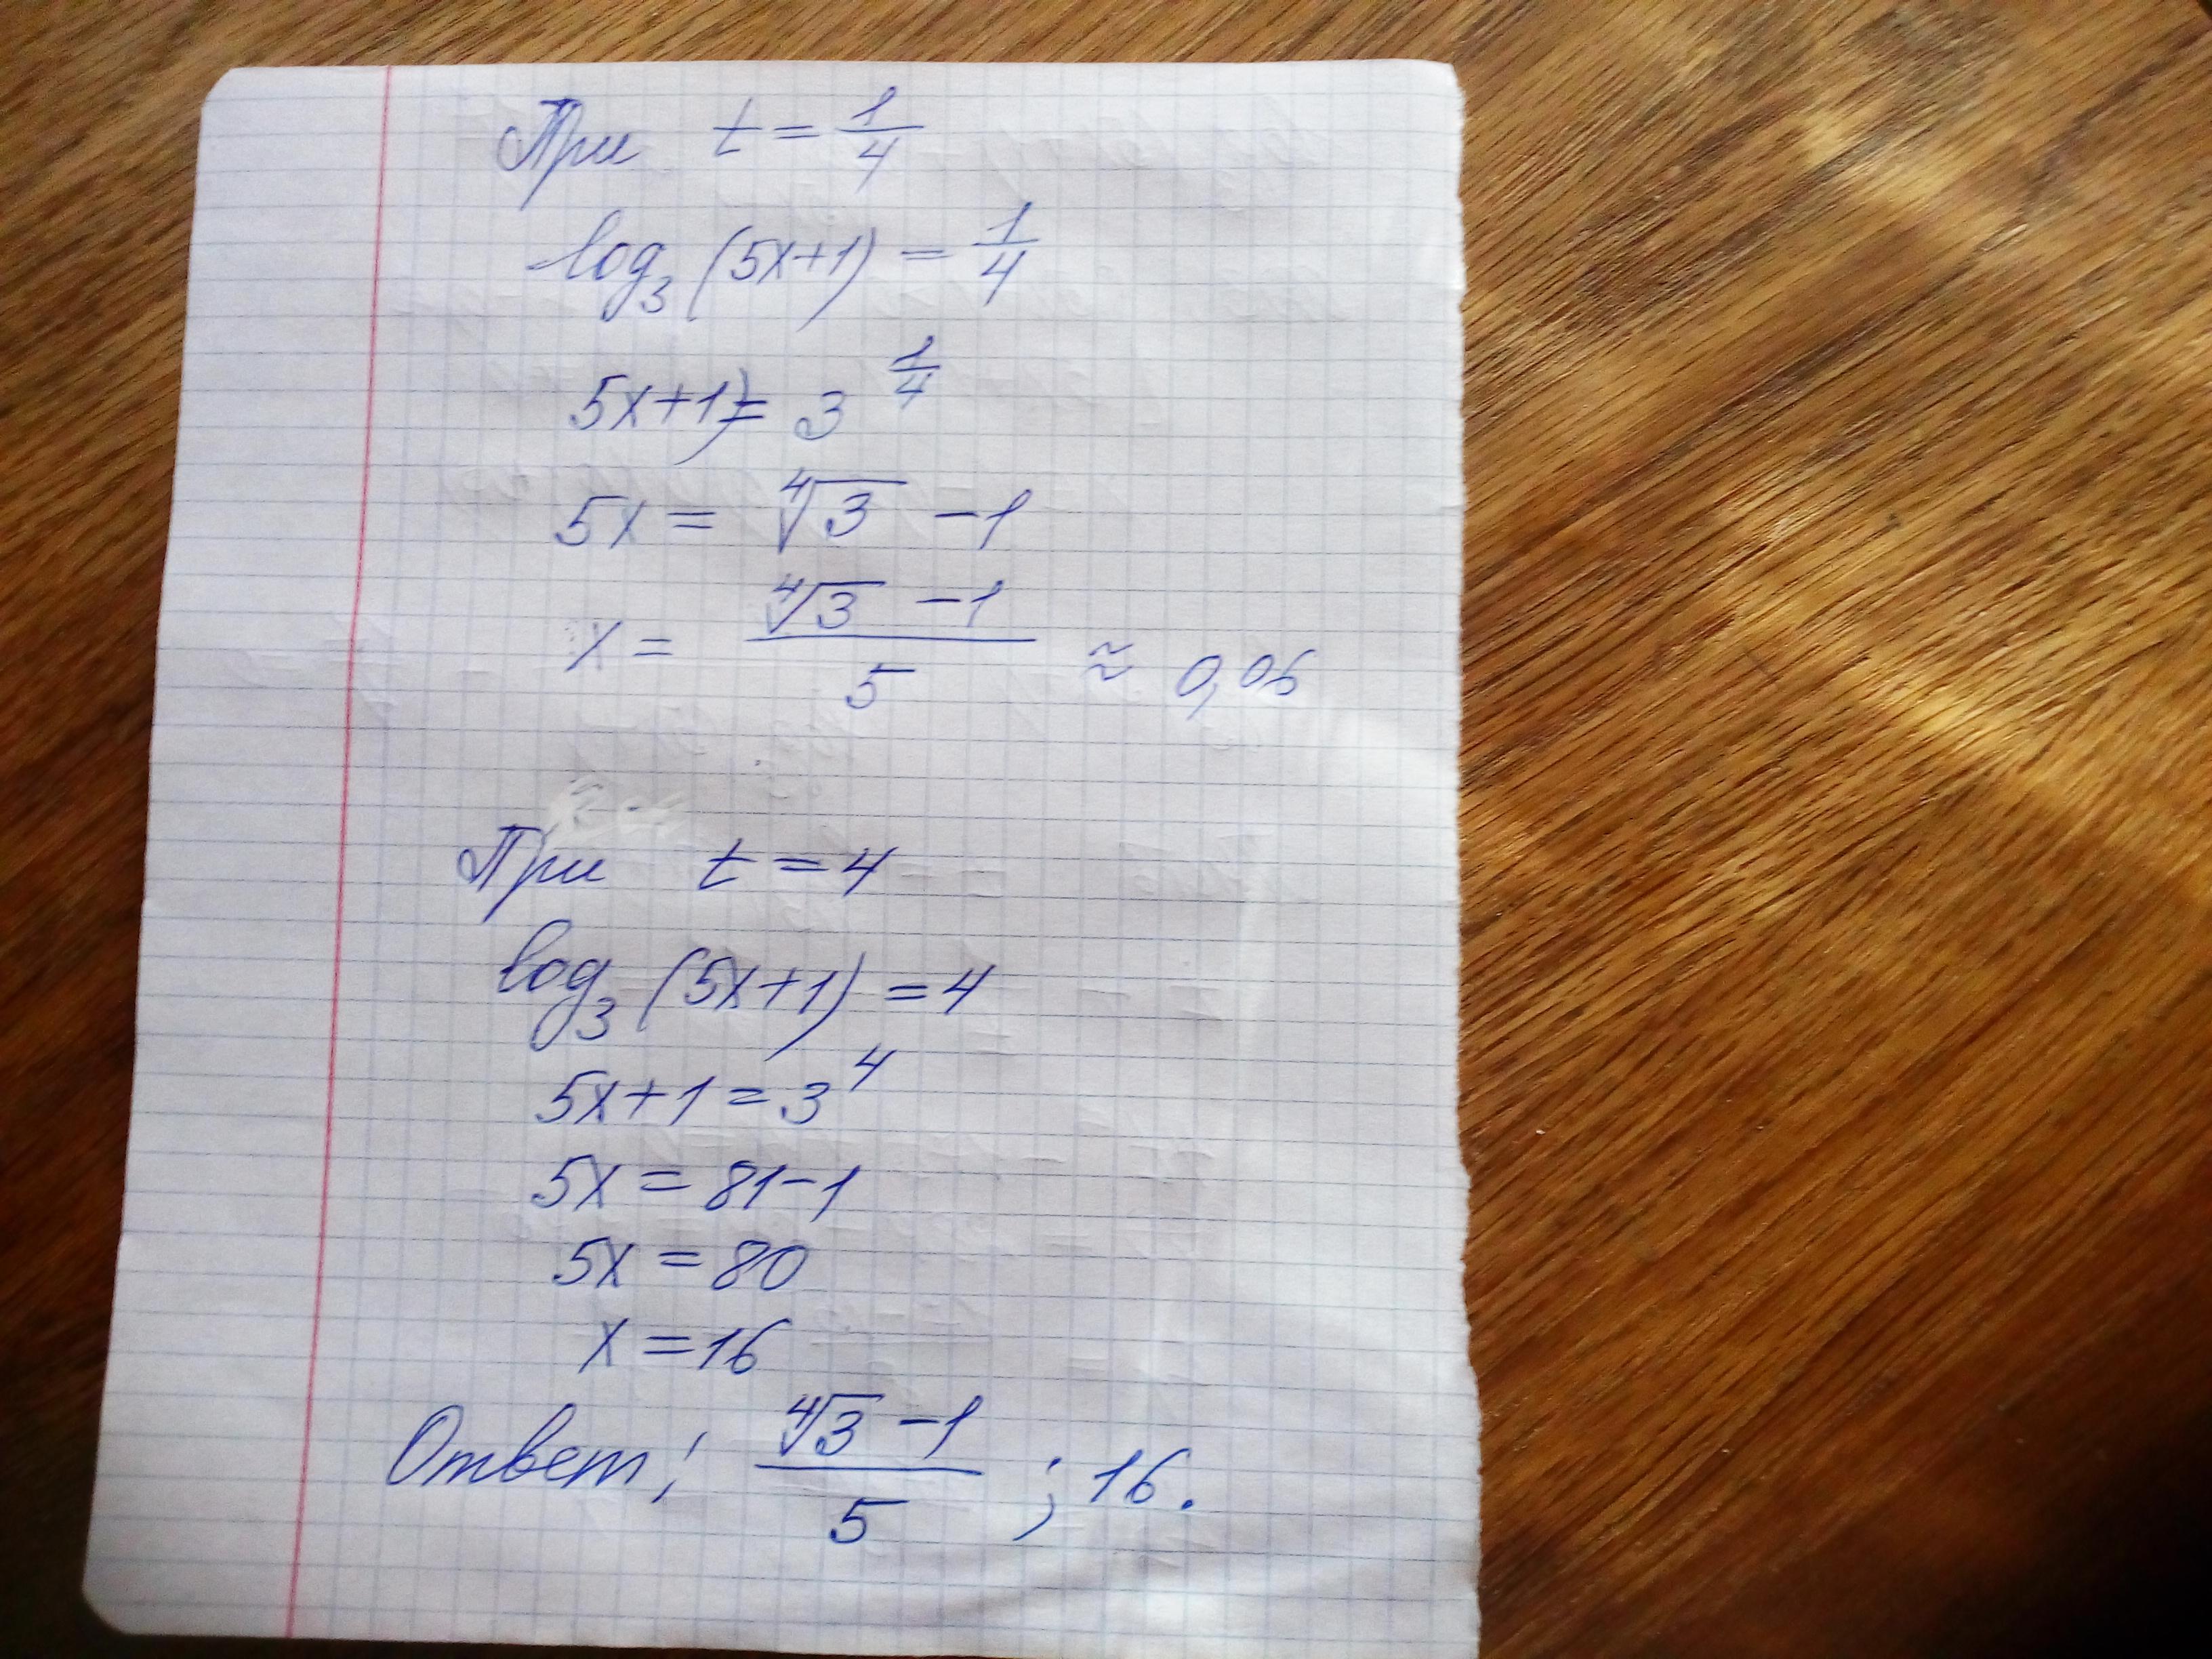 При t = 1/4
log₃ (5x+1) = 1/4
5x+1) = 3^(1/4)
5x = ⁴√3 - 1
x = (⁴√3 - 1)/5 ≈ 0,06
При t = 4
log₃ (5x+1) = 4
5x+1 = 3⁴
5x = 81-1
5x = 80
x = 16
Ответ: (⁴√3 - 1)/5 ; 16.